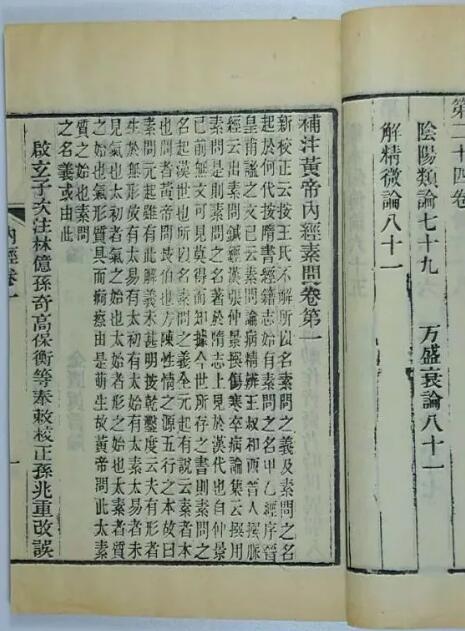 第二十四卷
陰陽類論七十九 方盛衰論八十
解精微論八十一
補注黃帝內經素問卷第一
新校正云按王氏不解所以名素問之義及素問之名
起於何代按隋書經籍志始有素問之名甲乙經序晉
皇甫謐之文已云素問論病精辨王叔和西晉人撰脉
經云出素問鍼經漢張仲景撰傷寒卒病論集云撰用
素問是則素問之名著於隋志上見於漢代也自仲景
已前無文可見莫得而知據今世所存之書則素問之
名起漢世也所以名素問之義全元起有說云素者本
也問者黃帝問岐伯也方陳性情之源五行之本故曰
素問元起雖有此解義未甚明按乾鑿度云夫有形者
生於無形故有太易有太初有太始有太素太易者未
見氣也太初者氣之始也太始者形之始也太素者質
之始也氣形質具而痾瘵由是萌生故黃帝問此太素
質之始也素問
之名義或由此
啟玄子次注林億孫奇高保衡等奉敕校正孫兆重改誤
內經卷一
一